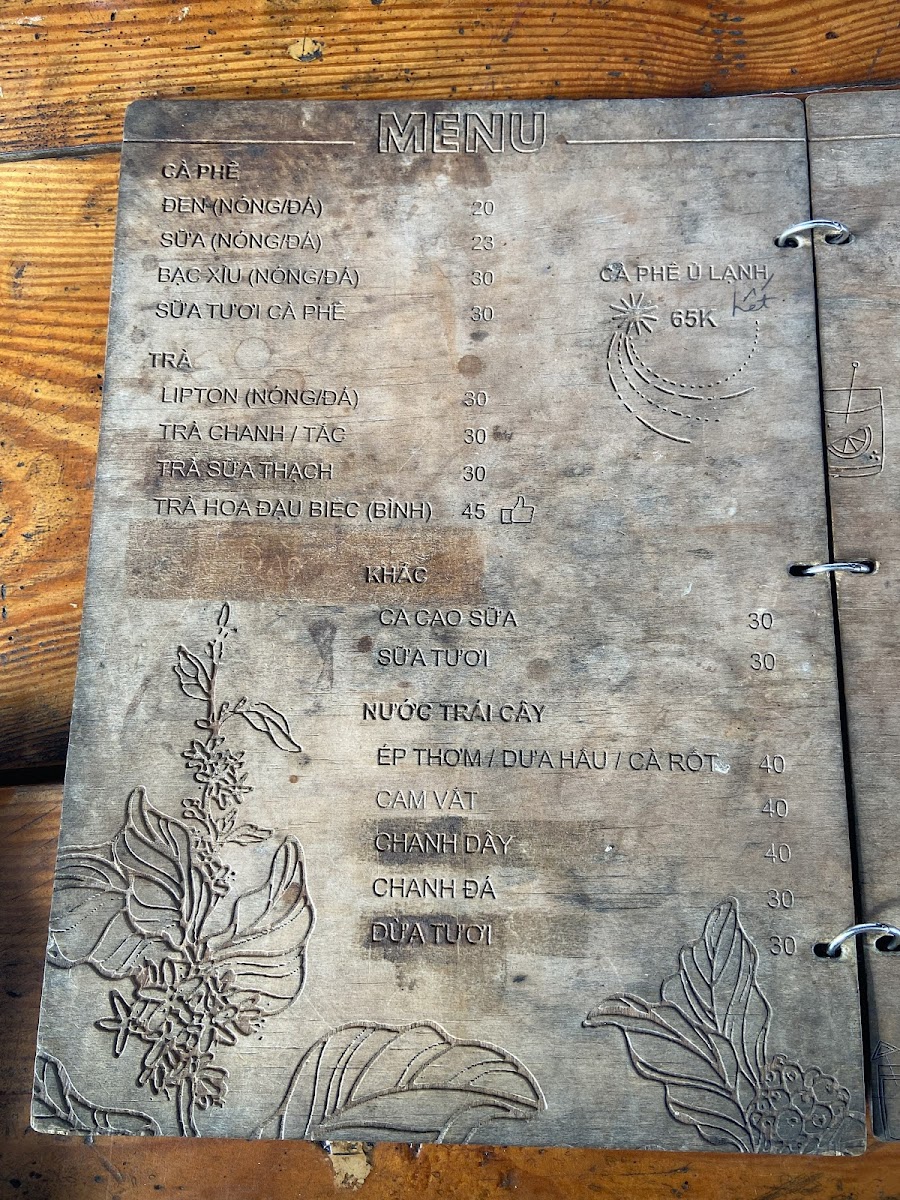 MENU
CÀ PHÊ
ĐEN (NÓNG/ĐÁ) 20
SỮA (NÓNG/ĐÁ) 23
BẠC XÍU (NÓNG/ĐÁ) 30
SỮA TƯƠI CÀ PHÊ 30
CÀ PHÊ Ủ LẠNH
hết
65K
TRÀ
LIPTON (NÓNG/ĐÁ) 30
TRÀ CHANH / TẮC 30
TRÀ SỮA THẠCH 30
TRÀ HOA ĐẬU BIẾC (BÌNH) 45
KHÁC
CA CAO SỮA 30
SỮA TƯƠI 30
NƯỚC TRÁI CÂY
ÉP THƠM / DƯA HẤU / CÀ RỐT 40
CAM VẮT 40
CHANH DÂY 40
CHANH ĐÁ 30
DỪA TƯƠI 30